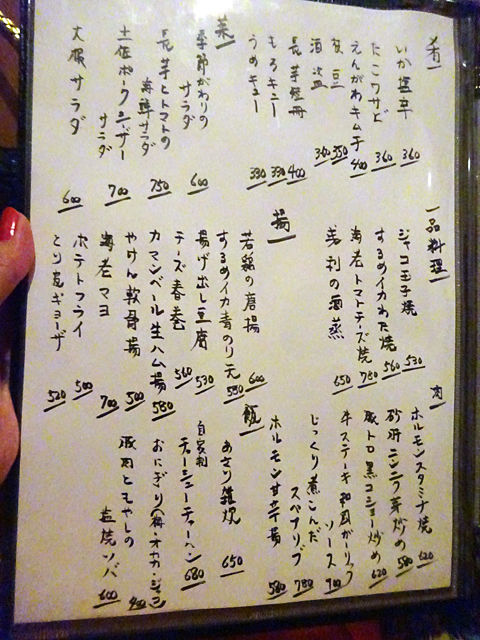 肴
いか塩辛 360
たこワサビ 360
えんがわキムチ 400
枝豆 350
酒盗 360
長芋短冊 400
もろキュー 330
うめキュー 330
菜
季節がわりのサラダ 600
長芋とトマトの海鮮サラダ 750
土佐ポークシーザーサラダ 700
大根サラダ 600
一品料理
ジャコ玉子焼 530
するめイカわた焼 560
海老トマトチーズ焼 780
浅利の酒蒸 650
揚
若鶏の唐揚 600
するめイカ青のり天 580
揚げ出し豆腐 530
チーズ春巻 560
カマンベール生ハム揚 580
やげん軟骨揚 500
海老マヨ 700
ポテトフライ 500
とり皮ギョーザ 520
肉
ホルモンスタミナ焼 620
砂肝ニンニク芽炒め 580
豚トロ黒コショー炒め 620
牛ステーキ和風ガーリックソース 900
じっくり煮こんだスペアリブ 780
ホルモン甘辛揚 580
飯
あさり雑炊 650
自家製チャーシューチャーハン 680
おにぎり(梅・オカカ・ジャコ) 400
豚肉ともやしの塩焼ソバ 600